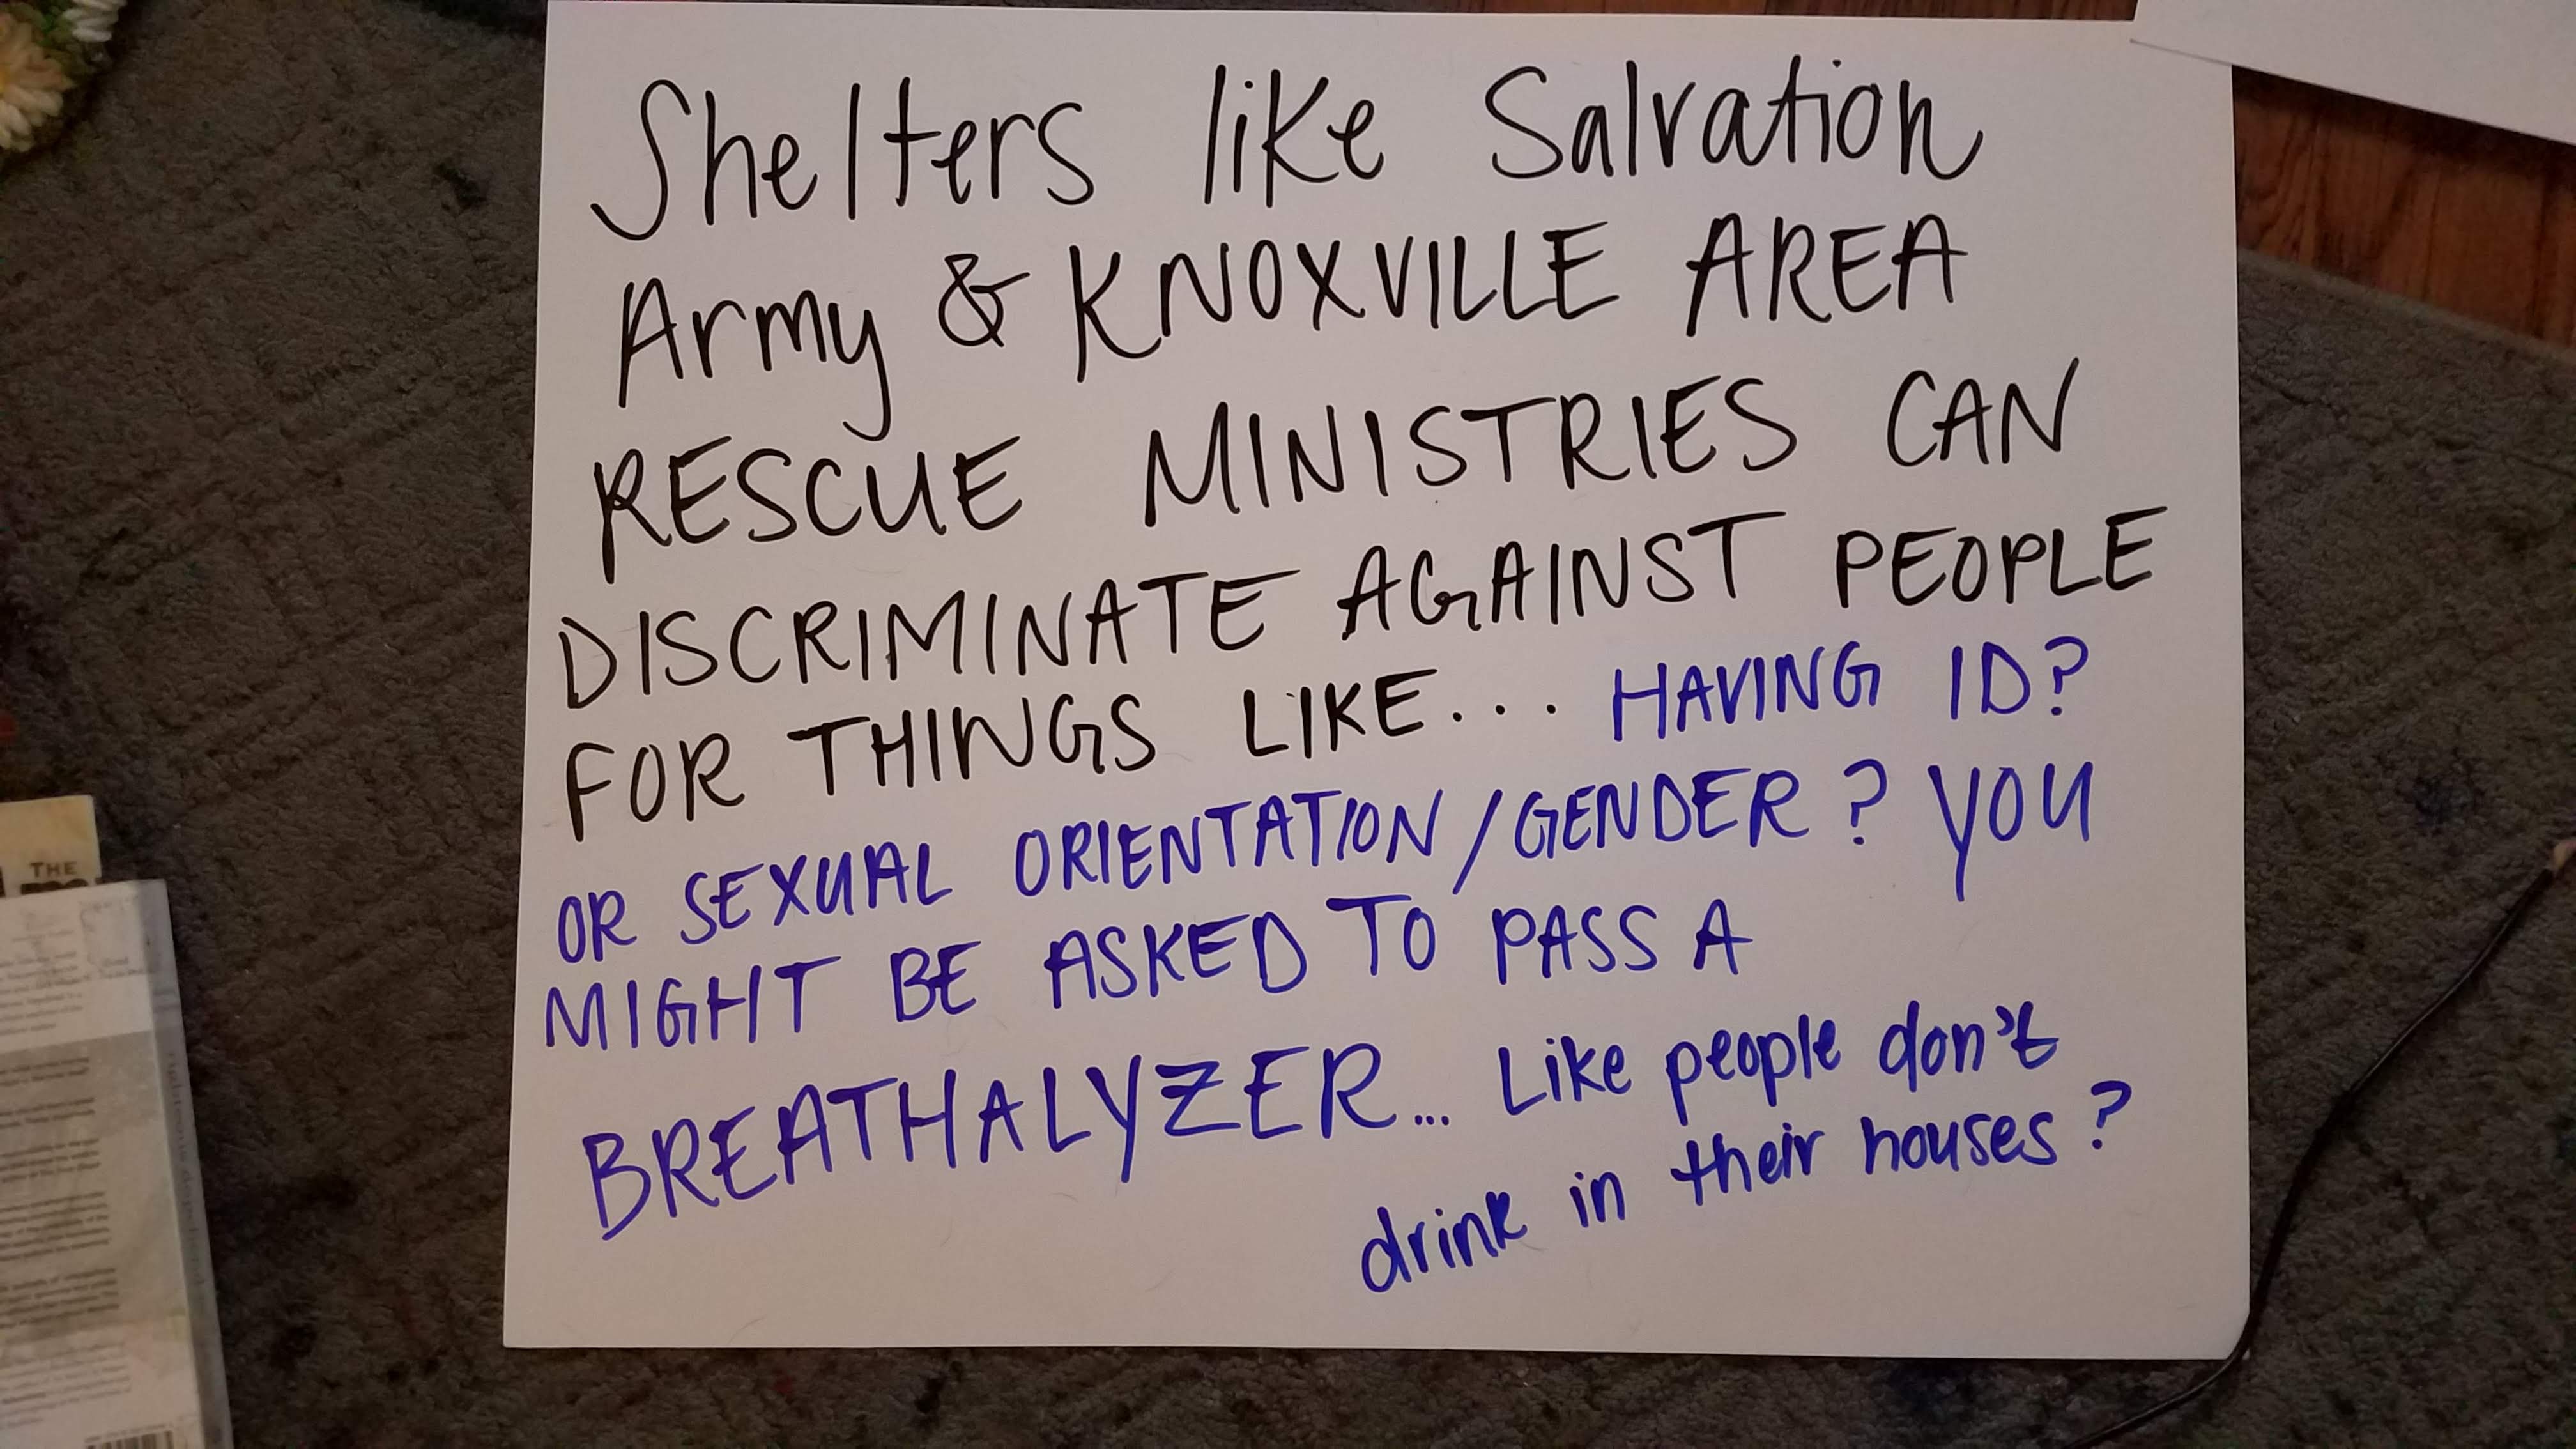 Shelters like Salvation
Army & KNOXVILLE AREA
RESCUE MINISTRIES CAN
DISCRIMINATE AGAINST PEOPLE
FOR THINGS LIKE... HAVING ID?
OR SEXUAL ORIENTATION/GENDER? YOU
MIGHT BE ASKED TO PASS A
BREATHALYZER... Like people don't
drink in their houses?
THE